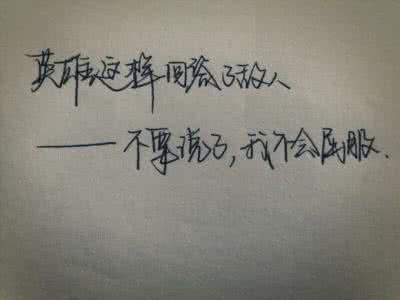 英雄这样回给了敌人
——不要说了,我不会屈服.